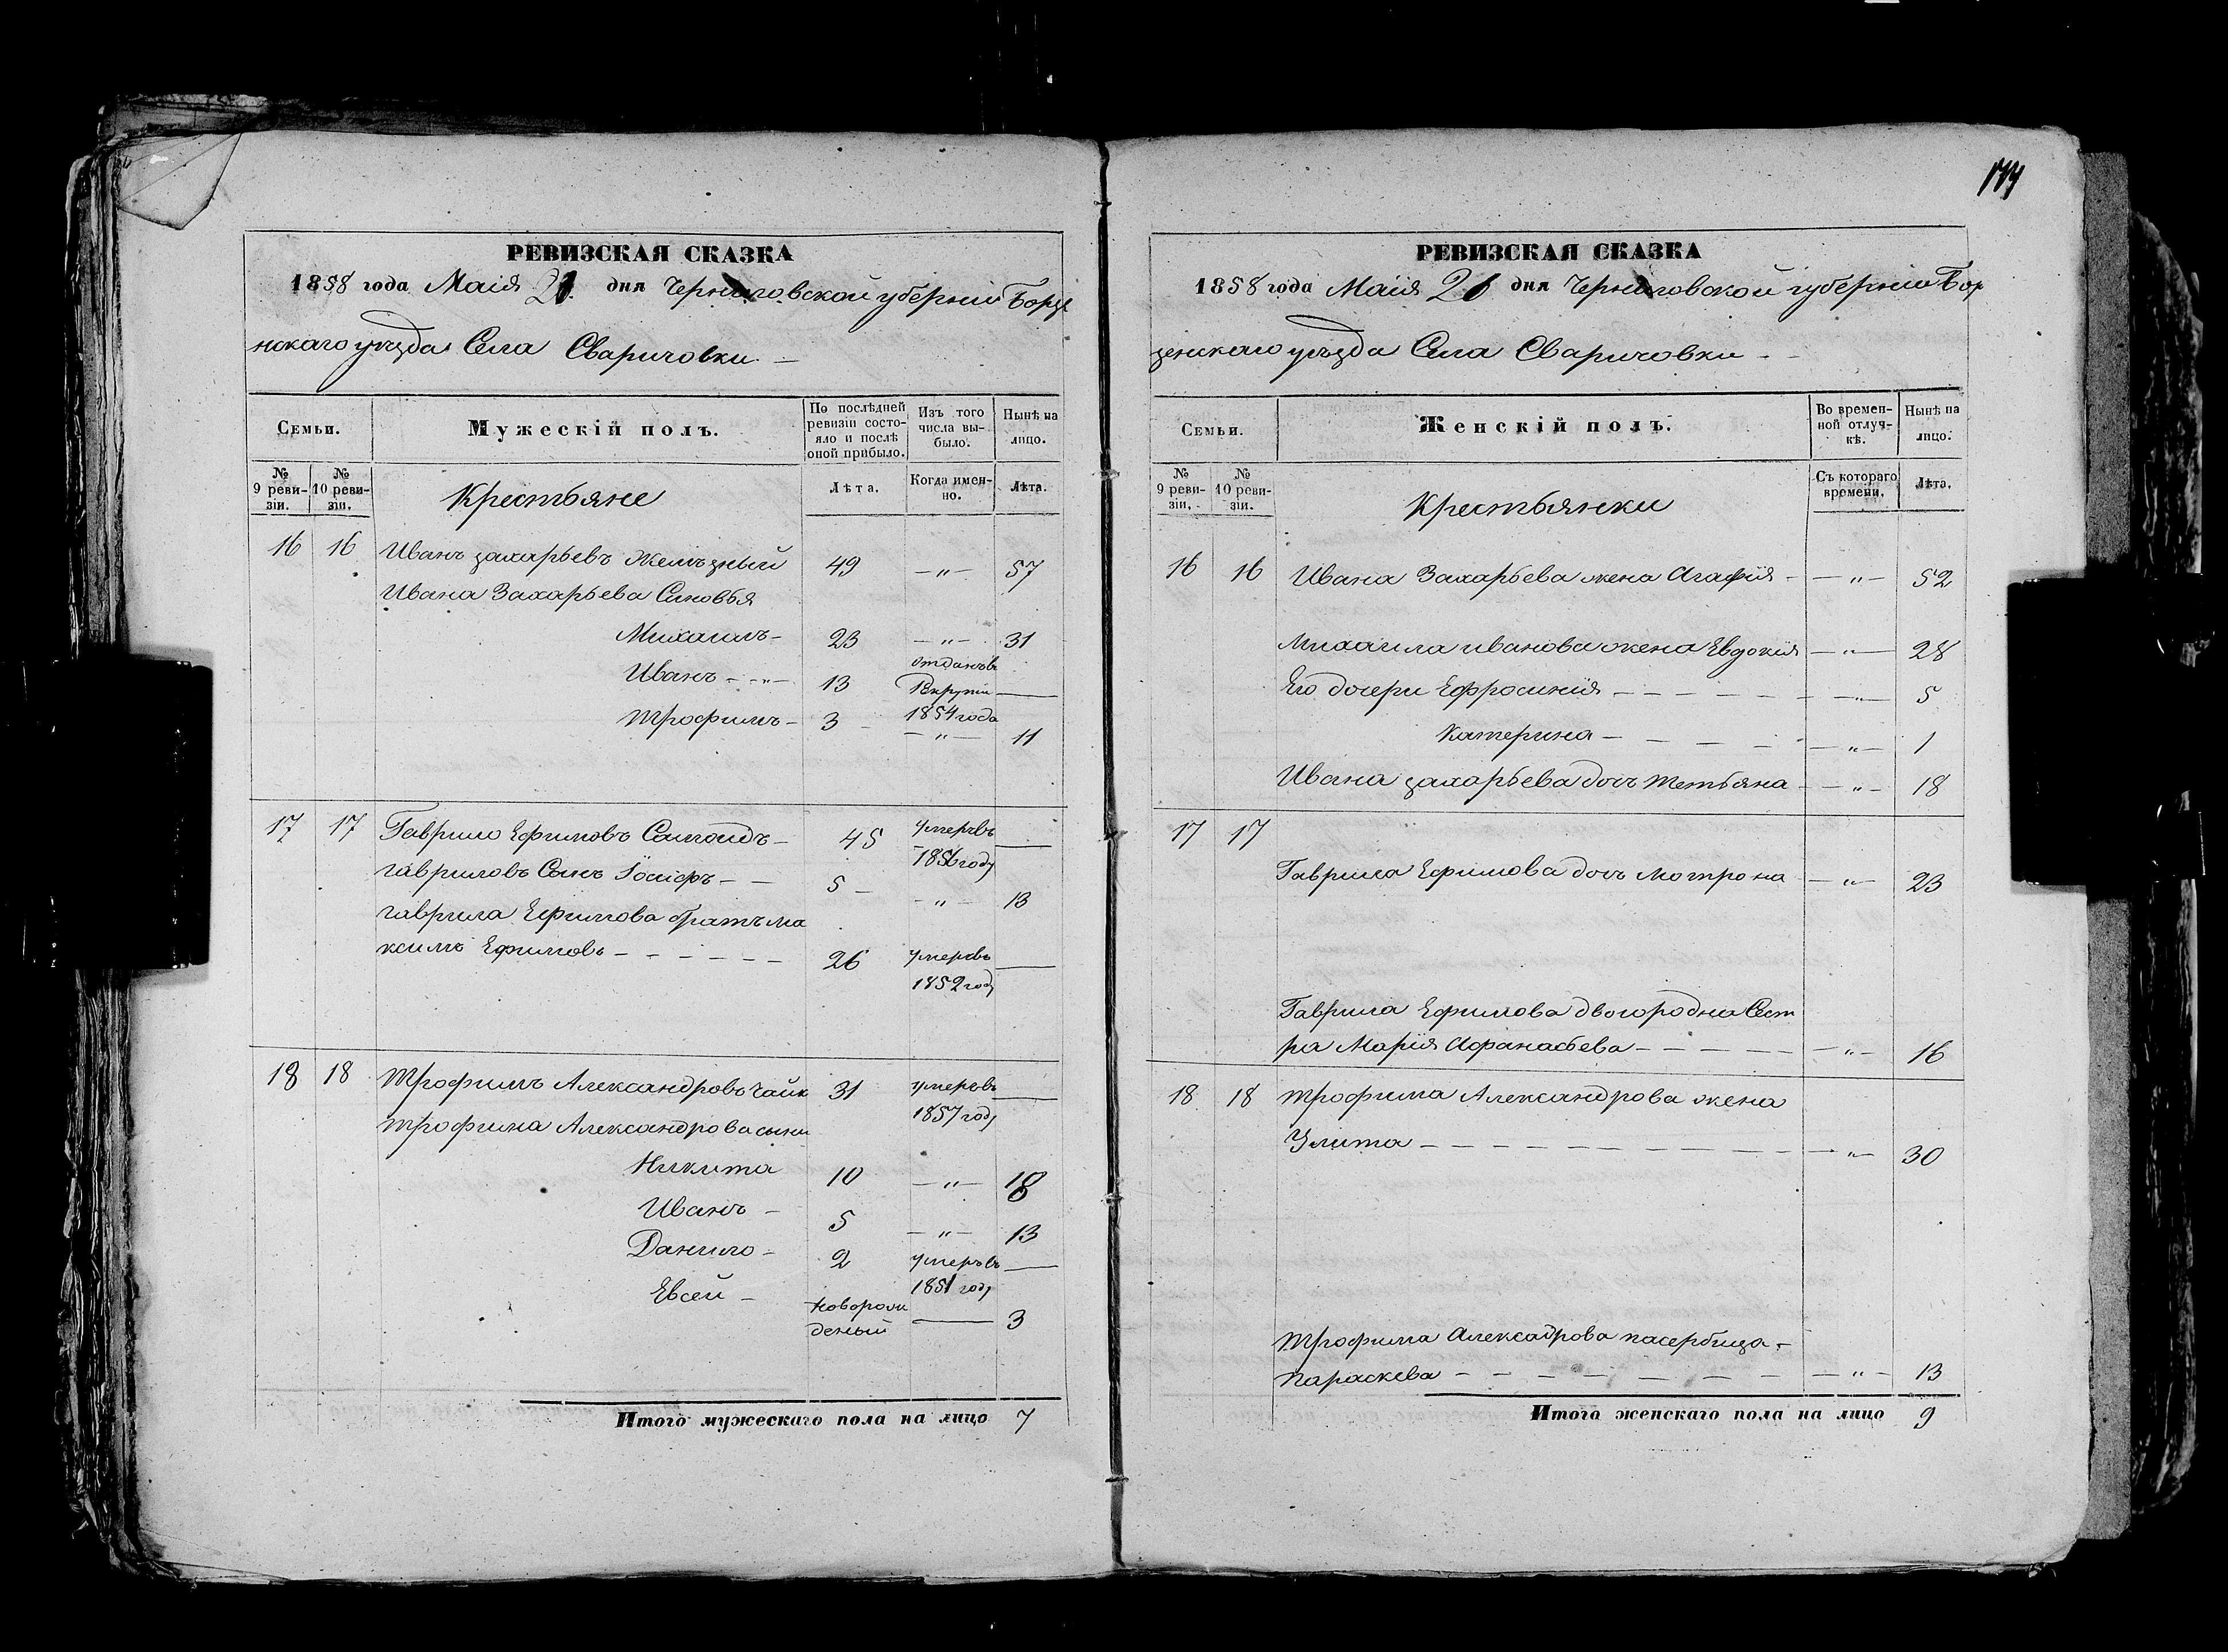 РЕВИЗСКАЯ СКАЗКА
1858 года Маія 21 дня Черниговской губерніи Борзе
нскаго уѣзда Села Сваричовки. —
Семьи.
Мужескій полъ.
По послѣдней ревизіи состояло и послѣ оной прибыло.
Изъ того числа выбыло.
Нынѣ на лицо.
№ 9 ревизіи.
№ 10 ревизіи.
Крестьяне
Лѣта.
Когда именно.
Лѣта.
16 16 Иванъ захарьевъ Желѣзный 49 — „ — 57
Ивана Захарьева Сыновья
Михаилъ — 23 — „ — 31
Иванъ — „ — 13 отданъ в Рекруты 1854 года —
Трофимъ — 3 — „ — 11
17 17 Гаврило Ефимовъ 45 умеръ 1856 году —
гавриловъ Сынъ Іосифъ — — 5 — — „ — 13
гаврила Ефимова братъ Ма
ксимъ Ефимовъ — — — — — — 26 умеръ 1852 году —
18 18 Трофимъ Александровъ Чайк 31 умеръ 1857 году —
Трофима Александрова сыни
Никита 10 — „ — 18
Иванъ — 5 — „ — 13
Данило — 2 умеръ 1851 году —
Евсей — новорожденый — 3
Итого мужескаго пола на лицо 7
РЕВИЗСКАЯ СКАЗКА
1858 года Маія 21 дня Черниговской губерніи Бор
зенскаго уѣзда Села Сваричовки — —
Семьи.
Женскій полъ.
Во временной отлучкѣ.
Нынѣ на лицо.
№ 9 ревизіи.
№ 10 ревизіи.
Крестьянки
Съ котораго времени.
Лѣта.
16 16 Ивана Захарьева жена Агафія — — „ — 52
Михаила иванова жена Евдокія — „ — 28
Его дочери Ефросинія — — — — — — „ — 5
Катерина — — — — — „ — 1
Ивана захарьева дочь Тетьяна — — „ — 18
17 17
Гаврила Ефимова дочь Мотрона — „ — 23
Гаврила Ефимова двогородна Сест
ра Марія Афанасьева — — — — — — „ — 16
18 18 Трофима Александрова жена
Улита — — — — — — — — — — „ — 30
Трофима Алексадрова пасербица —
Параскева — — — — — — — — — „ — 13
Итого женскаго пола на лицо 9